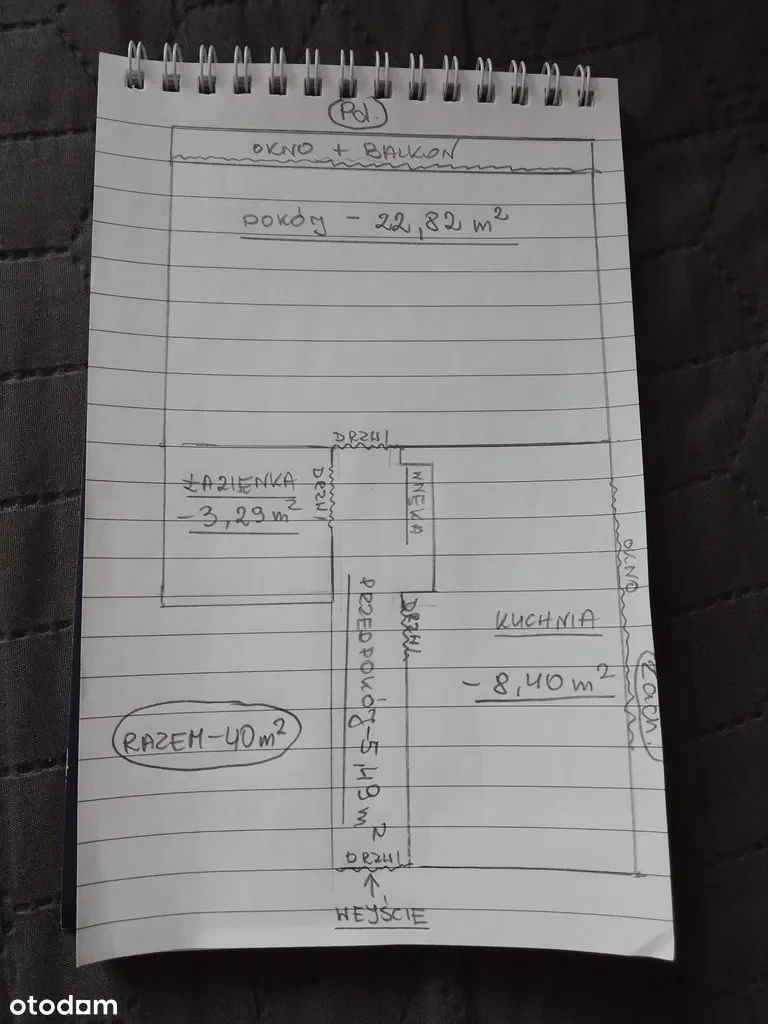 Pd.
OKNO + BALKON
POKÓJ - 22,82 m²
DRZWI
ŁAZIENKA
- 3,29 m²
DRZWI
WNĘKA
OKNO
DRZWI
KUCHNIA
- 8,40 m²
Zach.
PRZEDPOKÓJ - 5,49 m²
RAZEM - 40 m²
DRZWI
WEJŚCIE
otodom